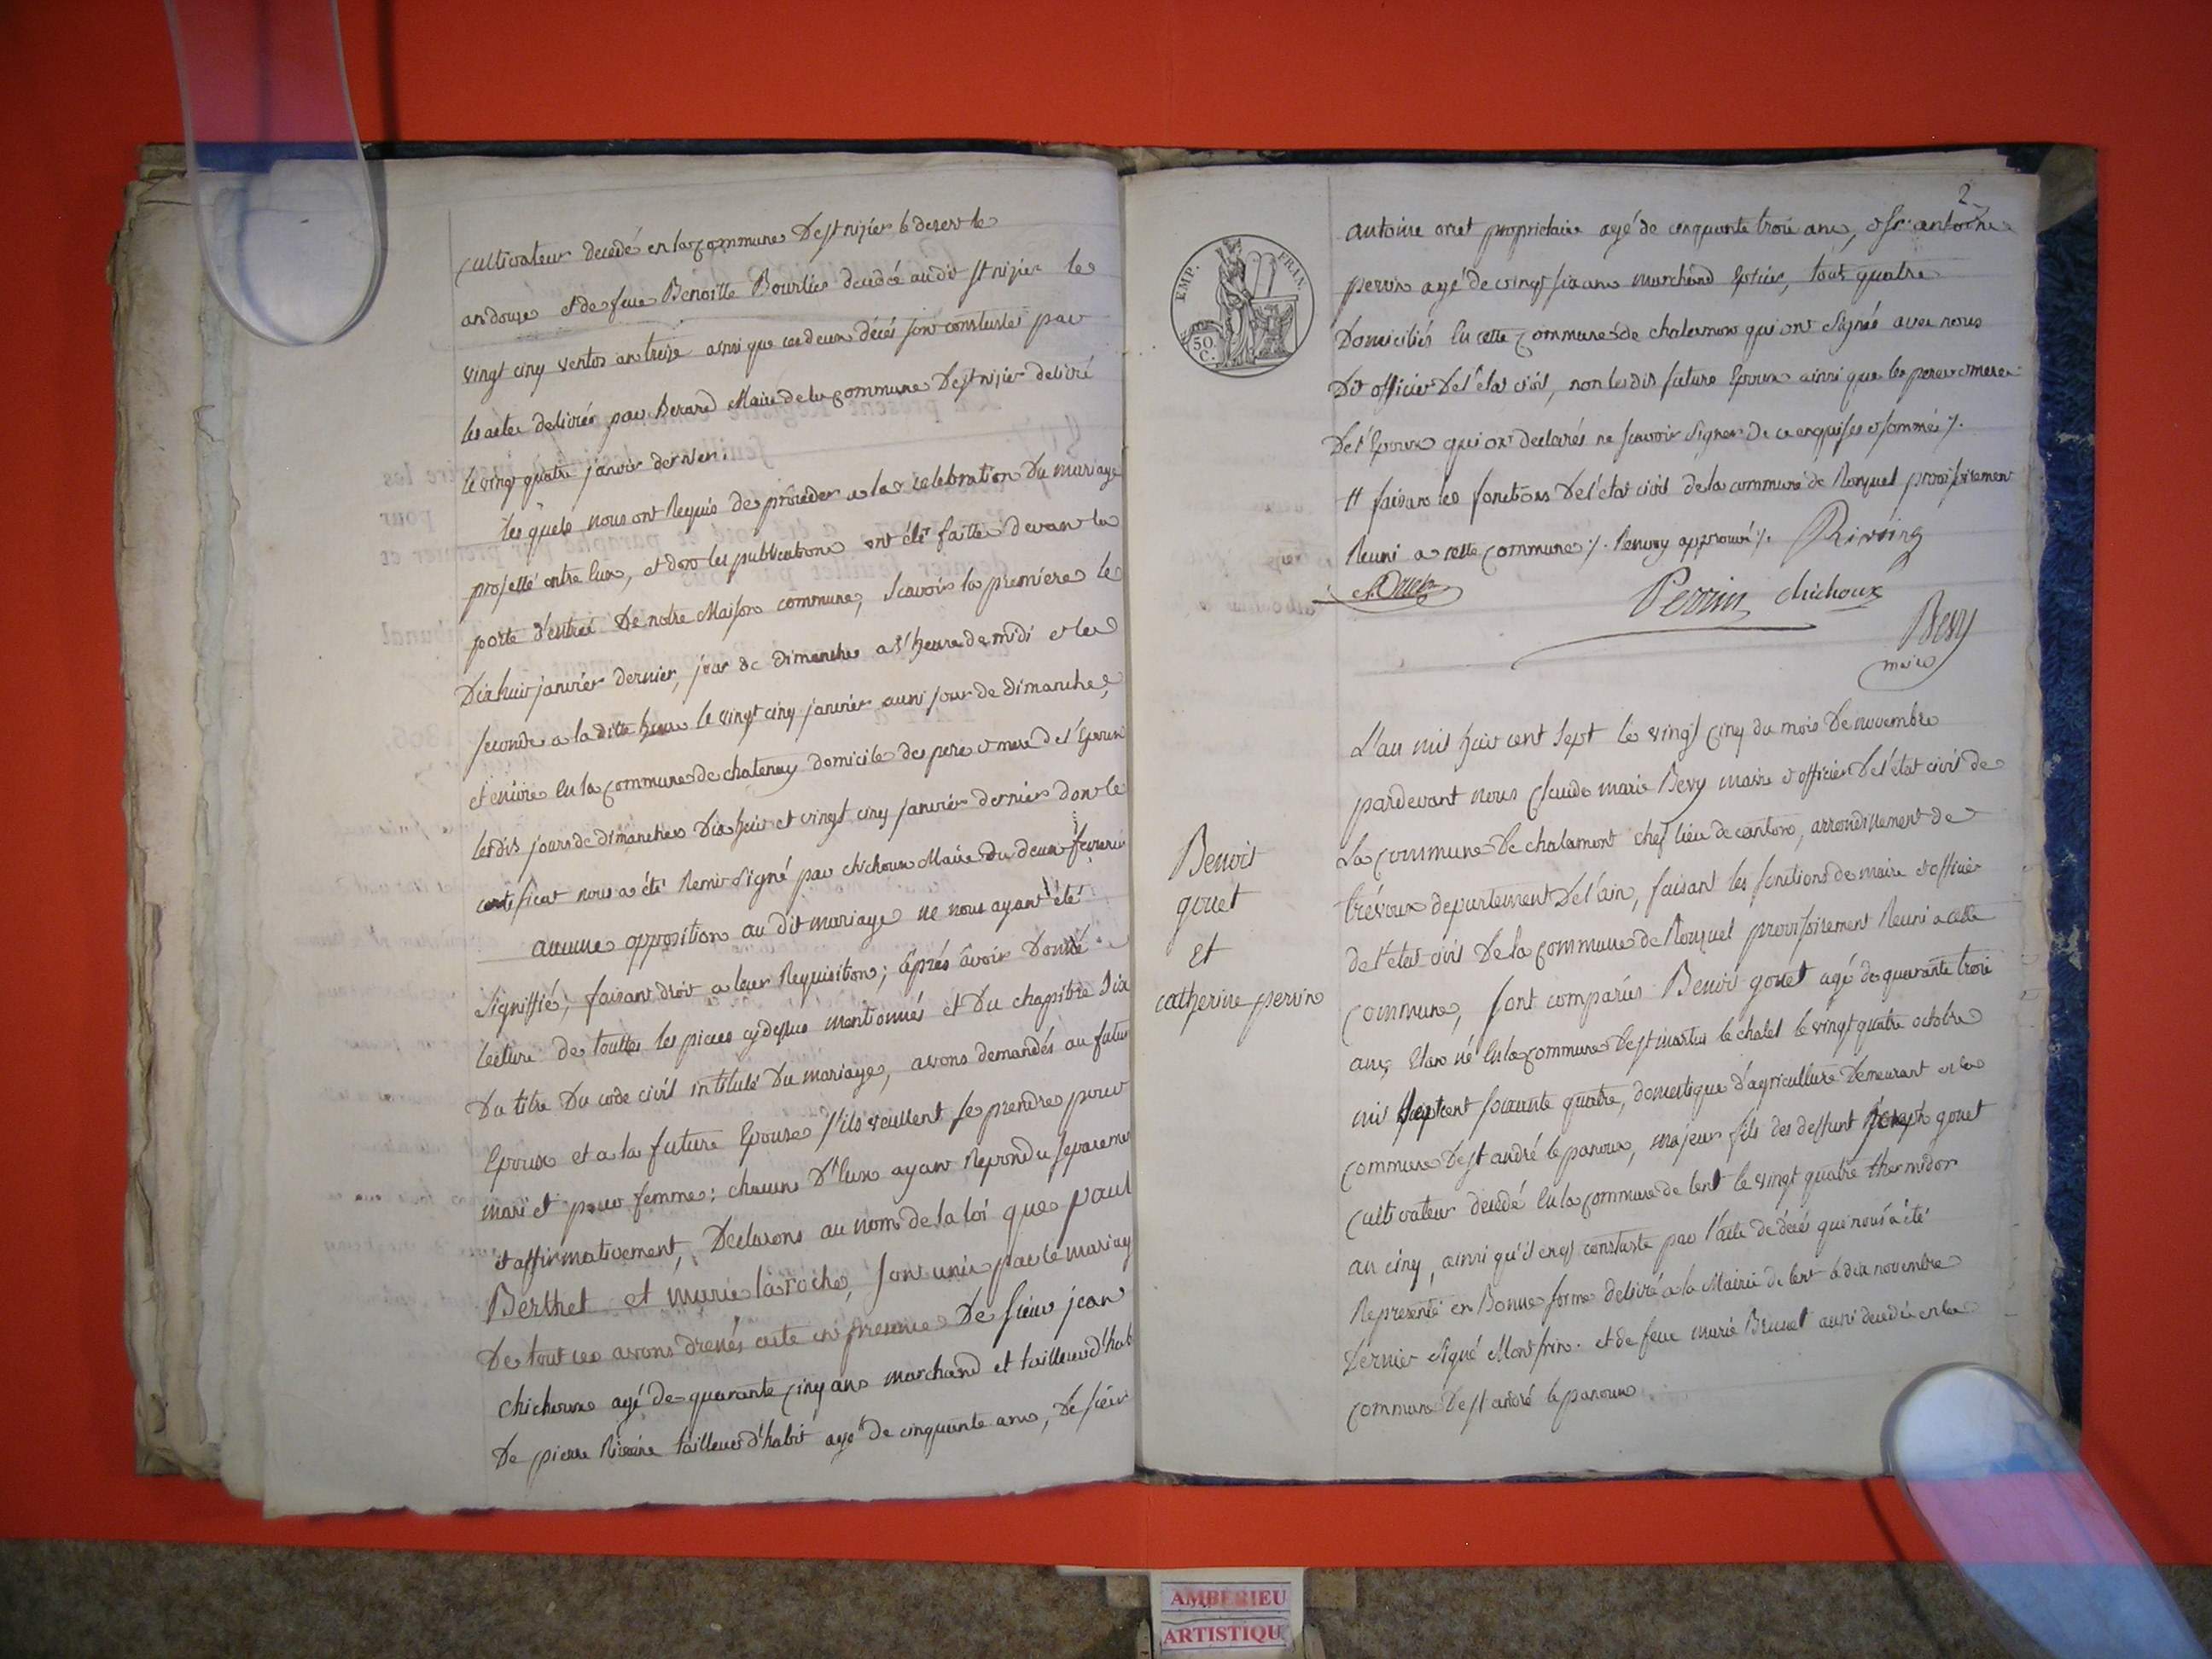 cultivateur decedé en la commune de st nizier le desert le
an douze et de feue Benoitte Bourlier decedée au dit st nizier le
vingt cinq ventos an treize ainsi que ces deux décés sont constatés par
les actes delivrés par Berard Maire de la commune de st nizier delivré
le vingt quatre janvier dernier.
les quels nous ont Requis de proceder a la celebration du mariage
projetté entre Eux, et dont les publications ont été faittes devant la
porte d'entreé de notre Maison commune, scavoir la premiere le
dix huit janvier dernier, jour de dimanche a l'heure de midi et la
seconde a la ditte heure le vingt cinq janvier aussi jour de dimanche,
et encore en la commune de chatenay domicile des pere et mere de l'Epoux
les dits jours de dimanches dix huit et vingt cinq janvier dernier dont le
certificat nous a été Remis signé par chichoux Maire du deux fevrier
aucune opposition au dit mariage ne nous ayant été
signiffié, faisant droit a leur Requisition; aprés avoir donné
lecture de touttes les pieces cy dessus mentionnés et du chapitre six
du titre du code civil intitulé du mariage, avons demandés au futur
Epoux et a la future Epouse s'ils veullent se prendre pour
mari et pour femme: chacun d'Eux ayant Repondu separement
et affirmativement, declarons au nom de la loi que paul
Berthet et marie laroche, sont unis par le mariage
De tout ce avons dressés acte en presence de sieur jean
chichoux agé de quarante cinq ans marchand et tailleur d'hab
De pierre Rivoire tailleur d'habit agé de cinquante ans, de sieur
2
EMP. FRAN.
50. C.
antoine oriet proprietaire agé de cinquante trois ans, et sr. antoine
perrin agé de vingt six ans marchand Epicier, tous quatre
Domiciliés En cette commune de chalamont qui ont signés avec nous
Dit officier de l'état civil, non les dits futurs Epoux ainsi que les pere et mere
De l'Epoux qui ont declarés ne scavoir signer de ce enquis et sommés ./.
# faisant les fonctions de l'état civil de la commune de Ronzuel provisoirement
Reuni a cette commune ./. Renvoy approuvé ./.
Perrin chichoux
Bevy
maire
L'an mil huit cent sept le vingt cinq du mois de novembre
pardevant nous claude marie Bevy maire et officier de l'état civil de
La commune de chalamont chef lieu de canton, arrondissement de
trévoux departement de l'ain, faisant les fonctions de maire et officier
de l'état civil de la commune de Ronzuel provisoirement Reuni a cette
commune, sont comparus Benoit gouet agé de quarante trois
ans, Etant né En la commune de st martin le chatel le vingt quatre octobre
mil sept cent soixante quatre, domestique d'agriculture demeurant en la
commune de st andré le panoux, majeur fils des deffunt joseph gouet
cultivateur decedé En la commune de lent le vingt quatre thermidor
an cinq, ainsi qu'il en est constaté par l'acte de decés qui nous a été
Representé en Bonne forme delivré a la Mairie de lent le dix novembre
dernier signé Montfrin. et de feue marie Brunet aussi decedée en la
commune de st andré le panoux
Benoit
gouet
Et
catherine perrin
AMBERIEU
ARTISTIQU